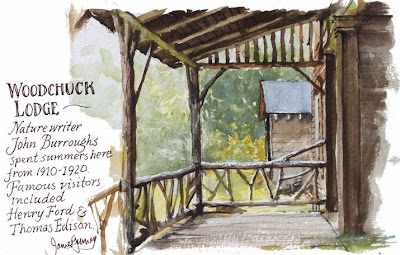 WOODCHUCK
LODGE
Nature writer
John Burroughs
spent summers here
from 1910-1920.
Famous visitors
included
Henry Ford &
Thomas Edison.
James Gurney